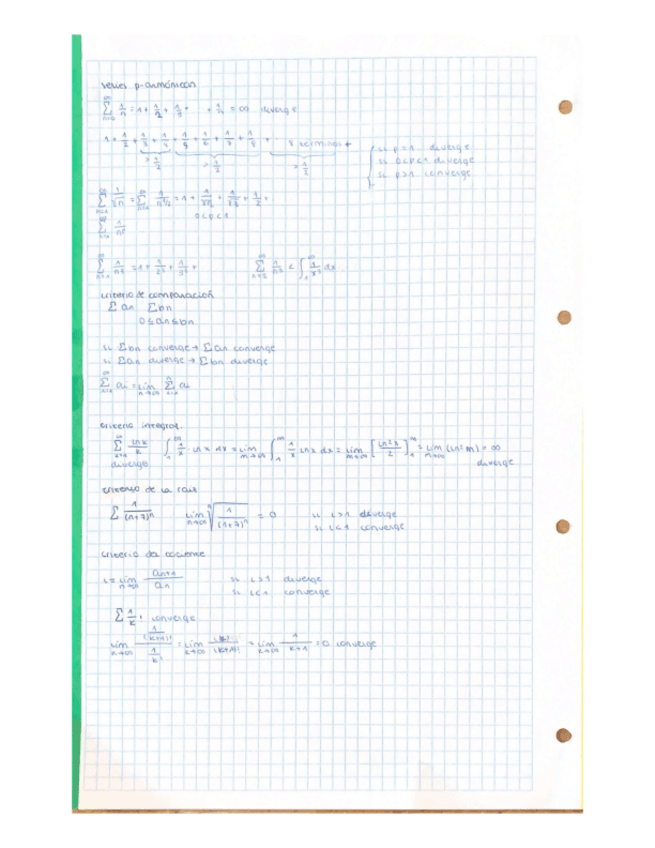 series p-armónicas
∞ Σ n=0 1/n = 1 + 1/2 + 1/3 + ... + 1/n = ∞ diverge
1 + 1/2 + 1/3 + 1/4 + 1/5 + 1/6 + 1/7 + 1/8 + ... 8 términos +
> 1/2 > 1/2 > 1/2
si p=1 diverge
si 0<p<1 diverge
si p>1 converge
0<p<1
criterio de comparación
Σ an Σ bn
0 ≤ an ≤ bn
si Σ bn converge → Σ an converge
si Σ an diverge → Σ bn diverge
∞ Σ ai = lim n→∞ n Σ ai
criterio integral
∞ Σ ln k/k ∫₁^∞ 1/x · ln x dx = lim m→∞ ∫₁^m 1/x ln x dx = lim m→∞ [ln²x/2]₁^m = lim m→∞ (ln²m) = ∞
diverge diverge
criterio de la raíz
Σ 1/(n+7)ⁿ lim n→∞ ⁿ√(1/(n+7)ⁿ) = 0 si L>1 diverge
si L<1 converge
criterio del cociente
L = lim n→∞ an+1/an si L>1 diverge
si L<1 converge
Σ 1/k! converge
lim n→∞ (1/(k+1)!)/(1/k!) = lim k→∞ k!/(k+1)! = lim k→∞ 1/(k+1) = 0 converge